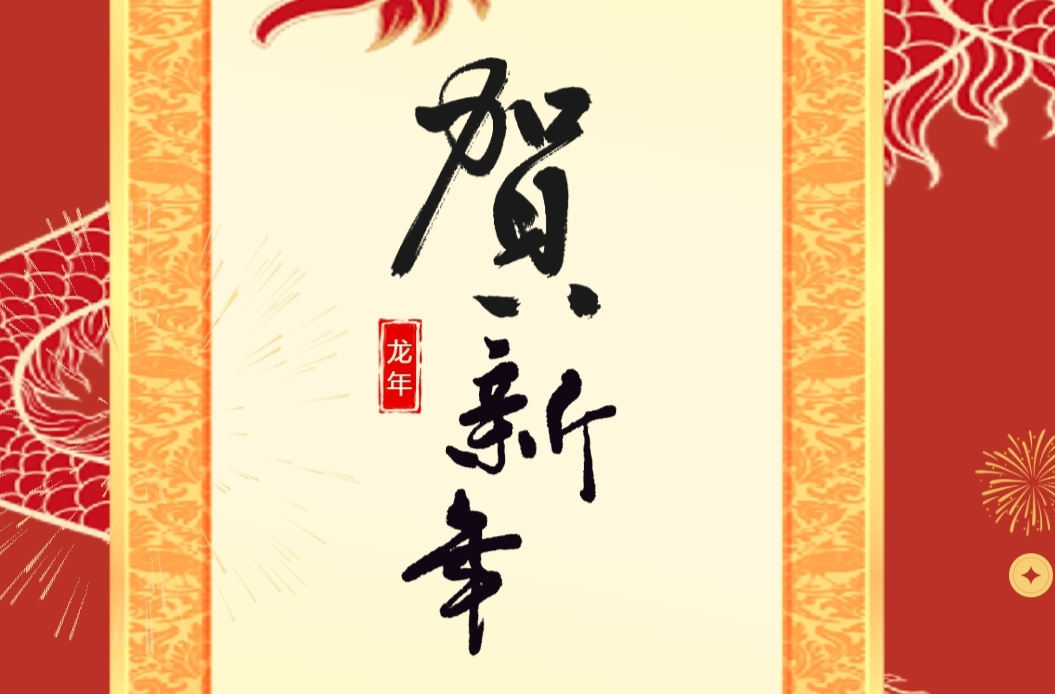 賀新年
龙年